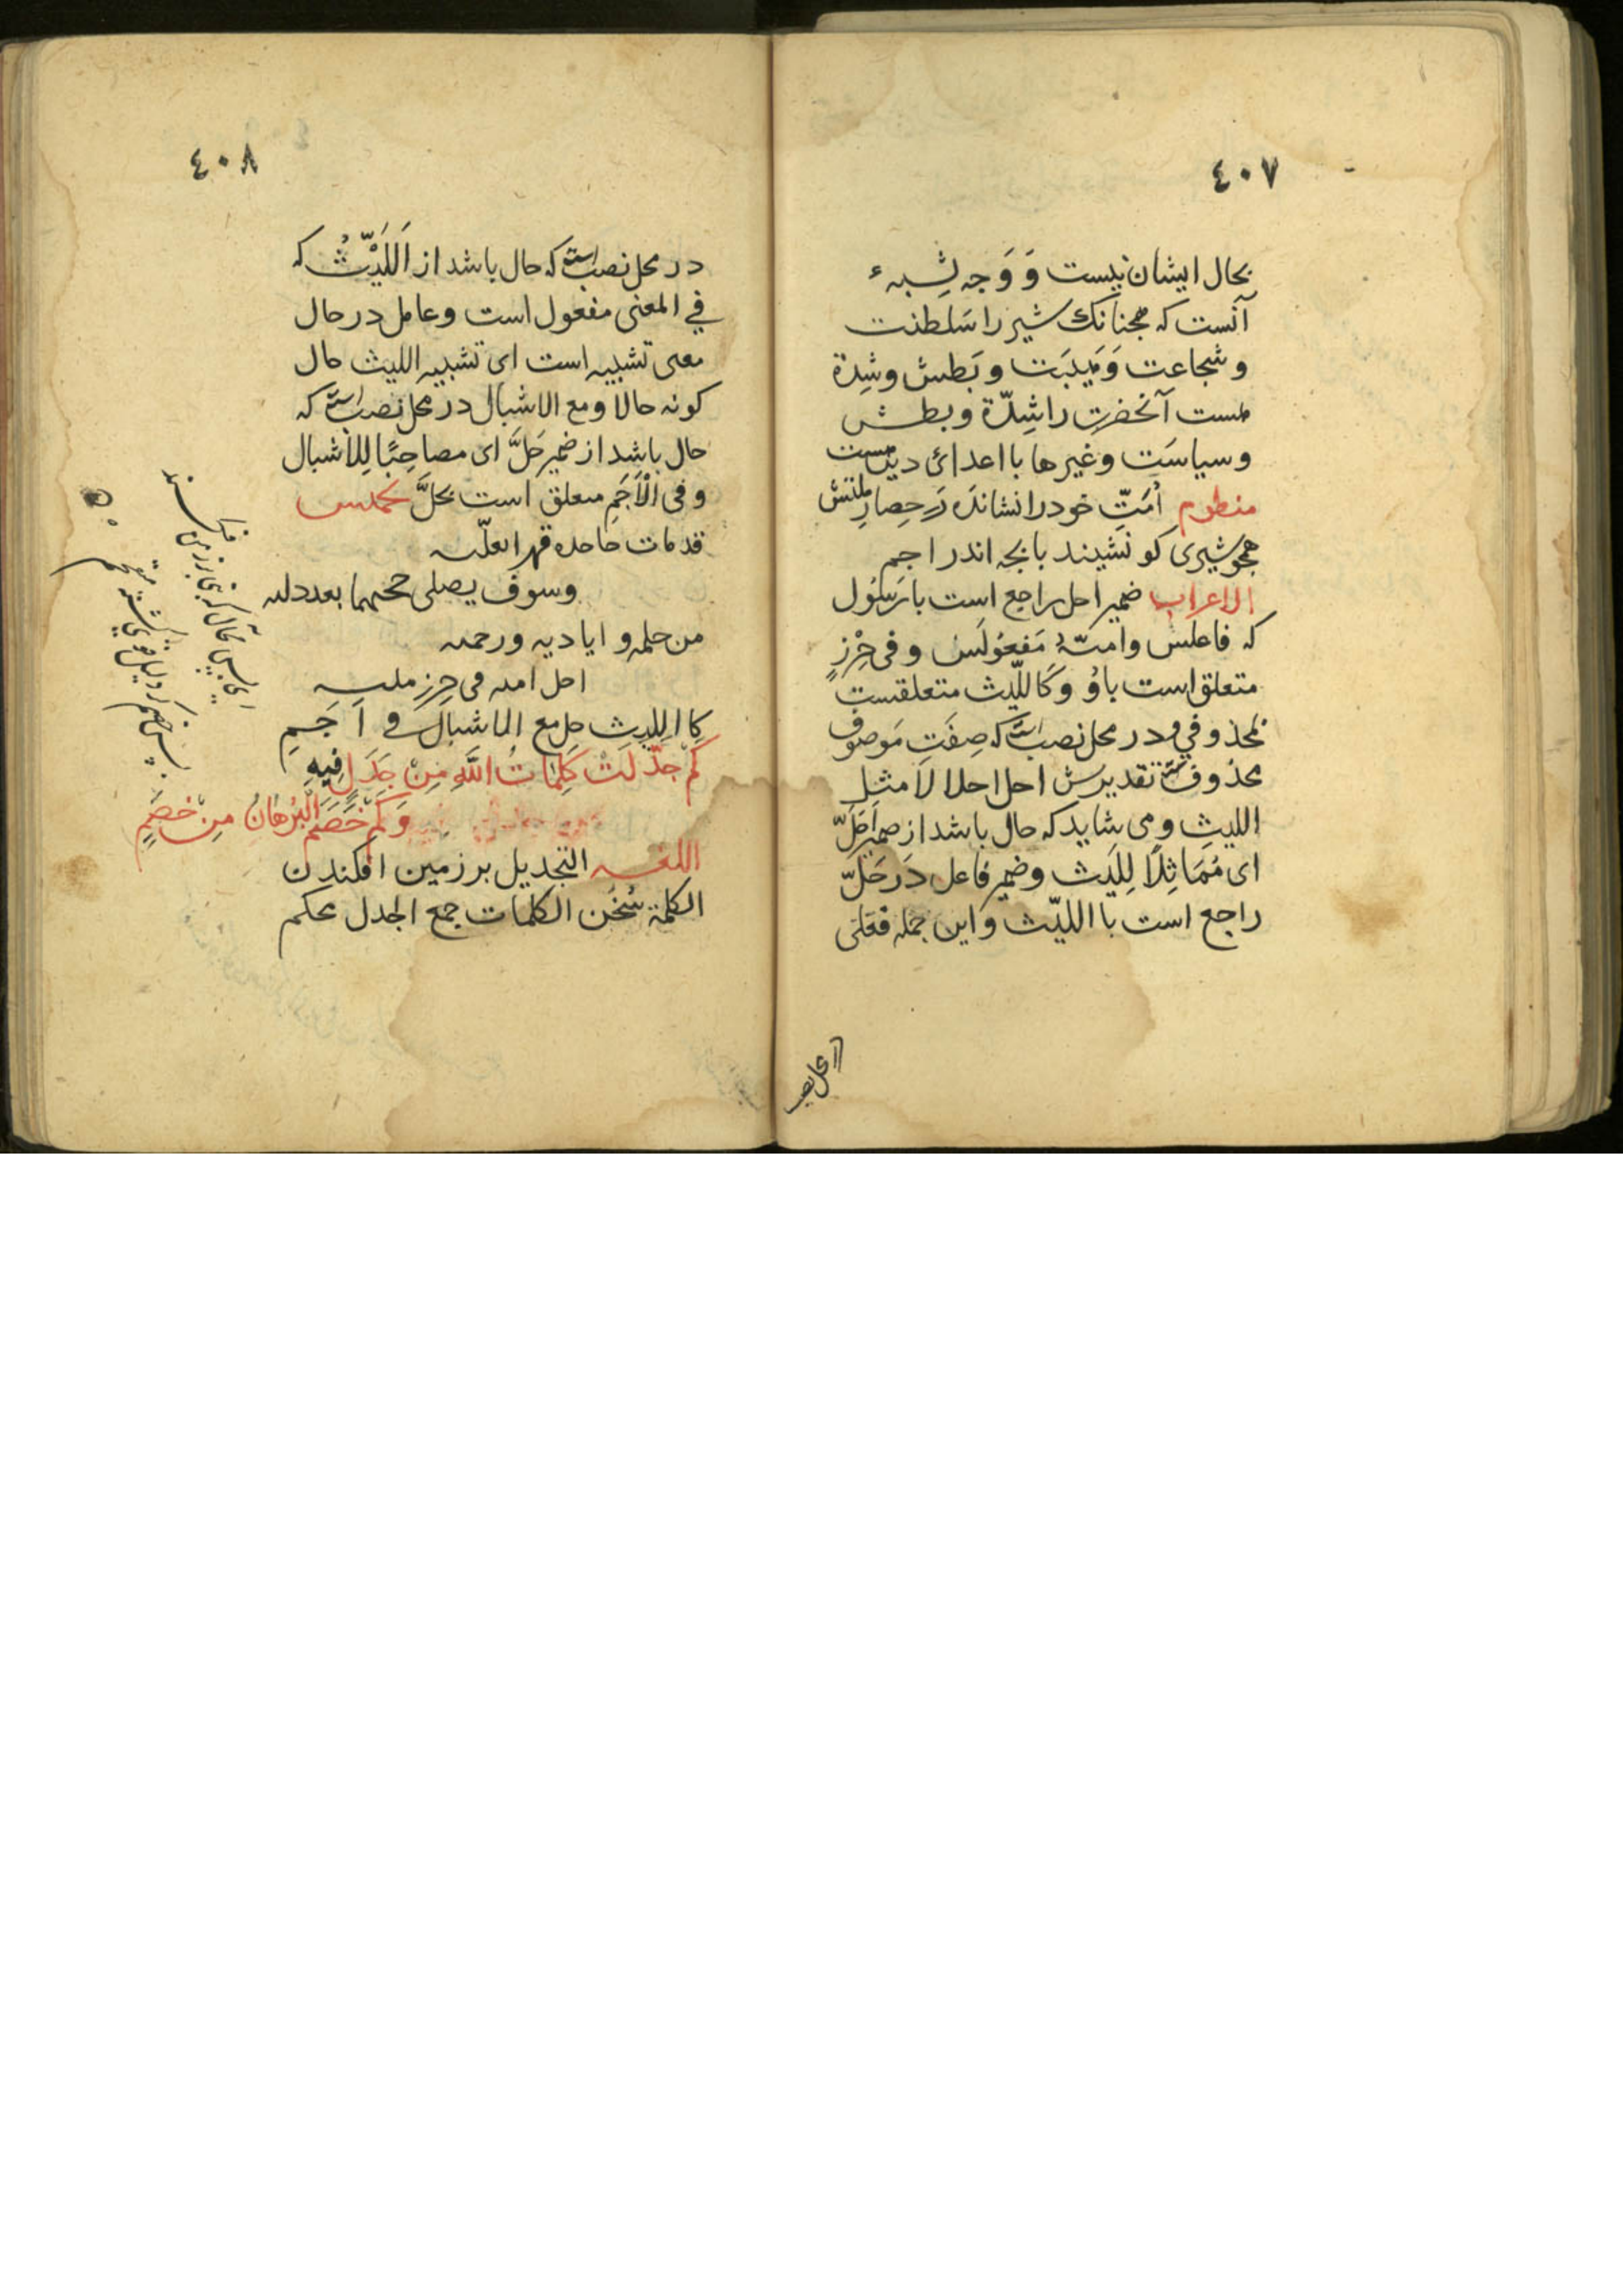 ٤٠٧
بحال ایشان نیست وَ وَجه شِبهء
آنست که همچنانک شیر را سَلطنت
و شجاعت وَ هَیبَت و بَطش و شِدة
هست آنحضرت را شِدّة و بطش
و سیاسَت و غیرها با اعدائ دین هست
منظوم اُمَتّ خود را نشانده دَر حِصارِ ملتش
همچو شیری کو نشیند با بچه اندر اجم
الاعراب ضمیر احل راجع است با رَسُول
که فاعلش و امتهُ مَفعُولَش و فی حِرْزِ
متعلق است باوُ وَ کَاللّیث متعلقست
بمحذوفی و در محل نصب است که صِفَتِ مَوصُوف
محذوفست تقدیرش احل احلالا مثل
اللیثِ و می شاید که حال باشد از ضمیر اَحَلَّ
ای مُمَاثِلًا لِلَیث و ضمیر فاعل دَر حَلَّ
راجع است با اللیّث و این جمله فعلی
در محل نصب
٤٠٨
در محل نصب است که حال باشد از اَللَیْثُ که
في المعنی مفعول است و عامل در حال
معنی تشبیه است ای تشبیه اللیث حال
کونه حالا و مع الاشبال در محل نصب است که
حال باشد از ضمیر حَلَّ ای مصاحِبًا لِلاَشبال
و فی الْاَجَمِ متعلق است بحلَّ تخمیس
قد مات حاحده قهرا بعلّته
وسوف یصلی جحیما بعد دلته
من حلمه و ایادیه ورحمته
احل امته فی حِرزِ ملته
کا اللیثِ حل مع الاشبال في اَجَمِ
کَمْ جدّلَتْ کَلِمَاتُ اللَّهِ مِنْ جَدَلٍ فِیهِ
وَکَمْ خَصَمَ الْبُرْهَانُ مِنْ خَصِمٍ
اللغـه التجدیل بر زمین افکندن
الکلمة سُخَن الکلمات جمع الجدل محکم